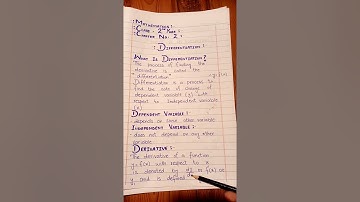 :Mathematics:
:Class : 2nd Year :
:Chapter No. 2 :
: Differentiation :
What Is Differentiation?
The process of finding the
derivative is called the
"differentiation"
Differentiation is a process to
find the rate of change of
dependent variable (y) with
respect to independent variable
(x)
Dependent Variable :
depends on some other variable
Independent Variable :
does not depend on any other
variable
Derivative :
The derivative of a function
y = f(x) with respect to x
is denoted by dy/dx or f'(x) or
y' and is defined as